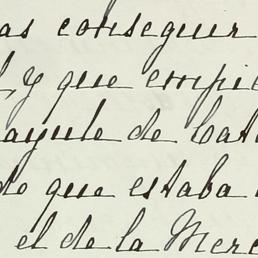 as conseguir
l, y que empie
ayude de Cat
do que estaba
el de la Merc